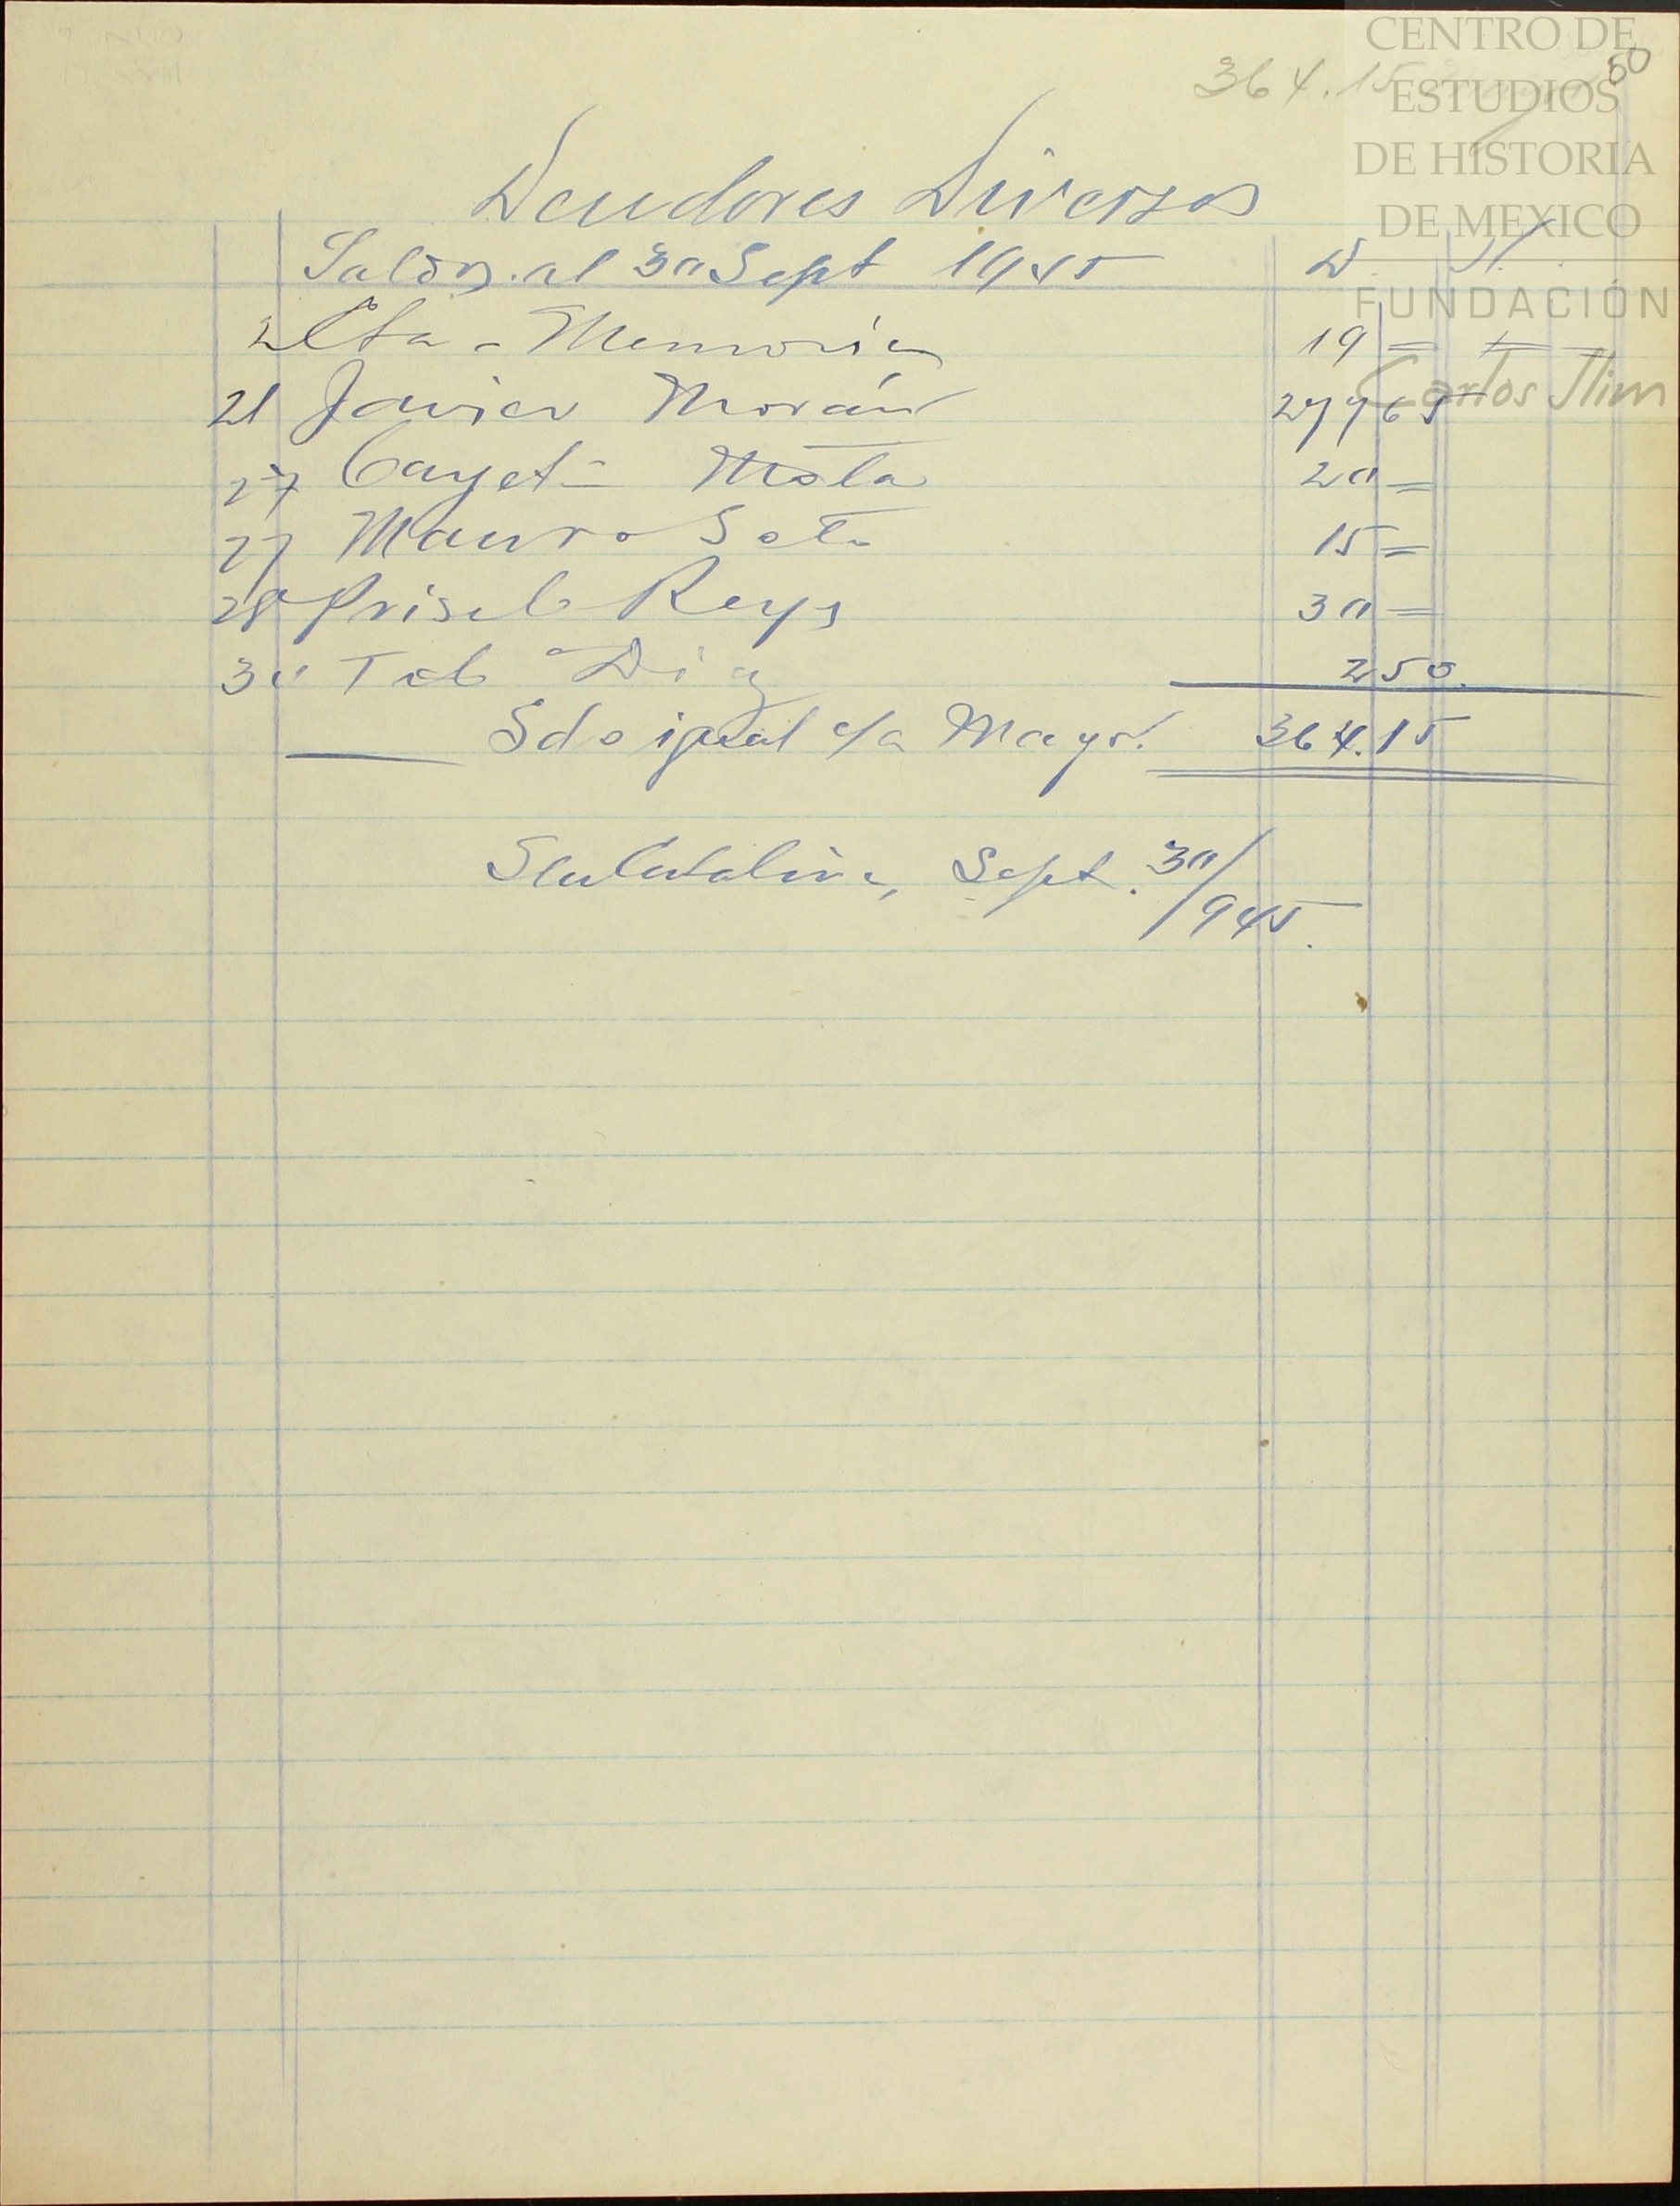 CENTRO DE
ESTUDIOS
DE HISTORIA
DE MEXICO
FUNDACIÓN
Carlos Slim
50
364.15
Deudores Diversos
Saldos al 30 Sept 1945 D. H.
2 Cta - Memoria 19 =
21 Javier Morán 277 65
27 Cayet= Mota 20 =
27 Mauro Soto 15 =
28 Prisc Reys 30 =
30 Diaz 2 50.
Sdo igual c/a Mayor. 364.15
Sept. 30/945.